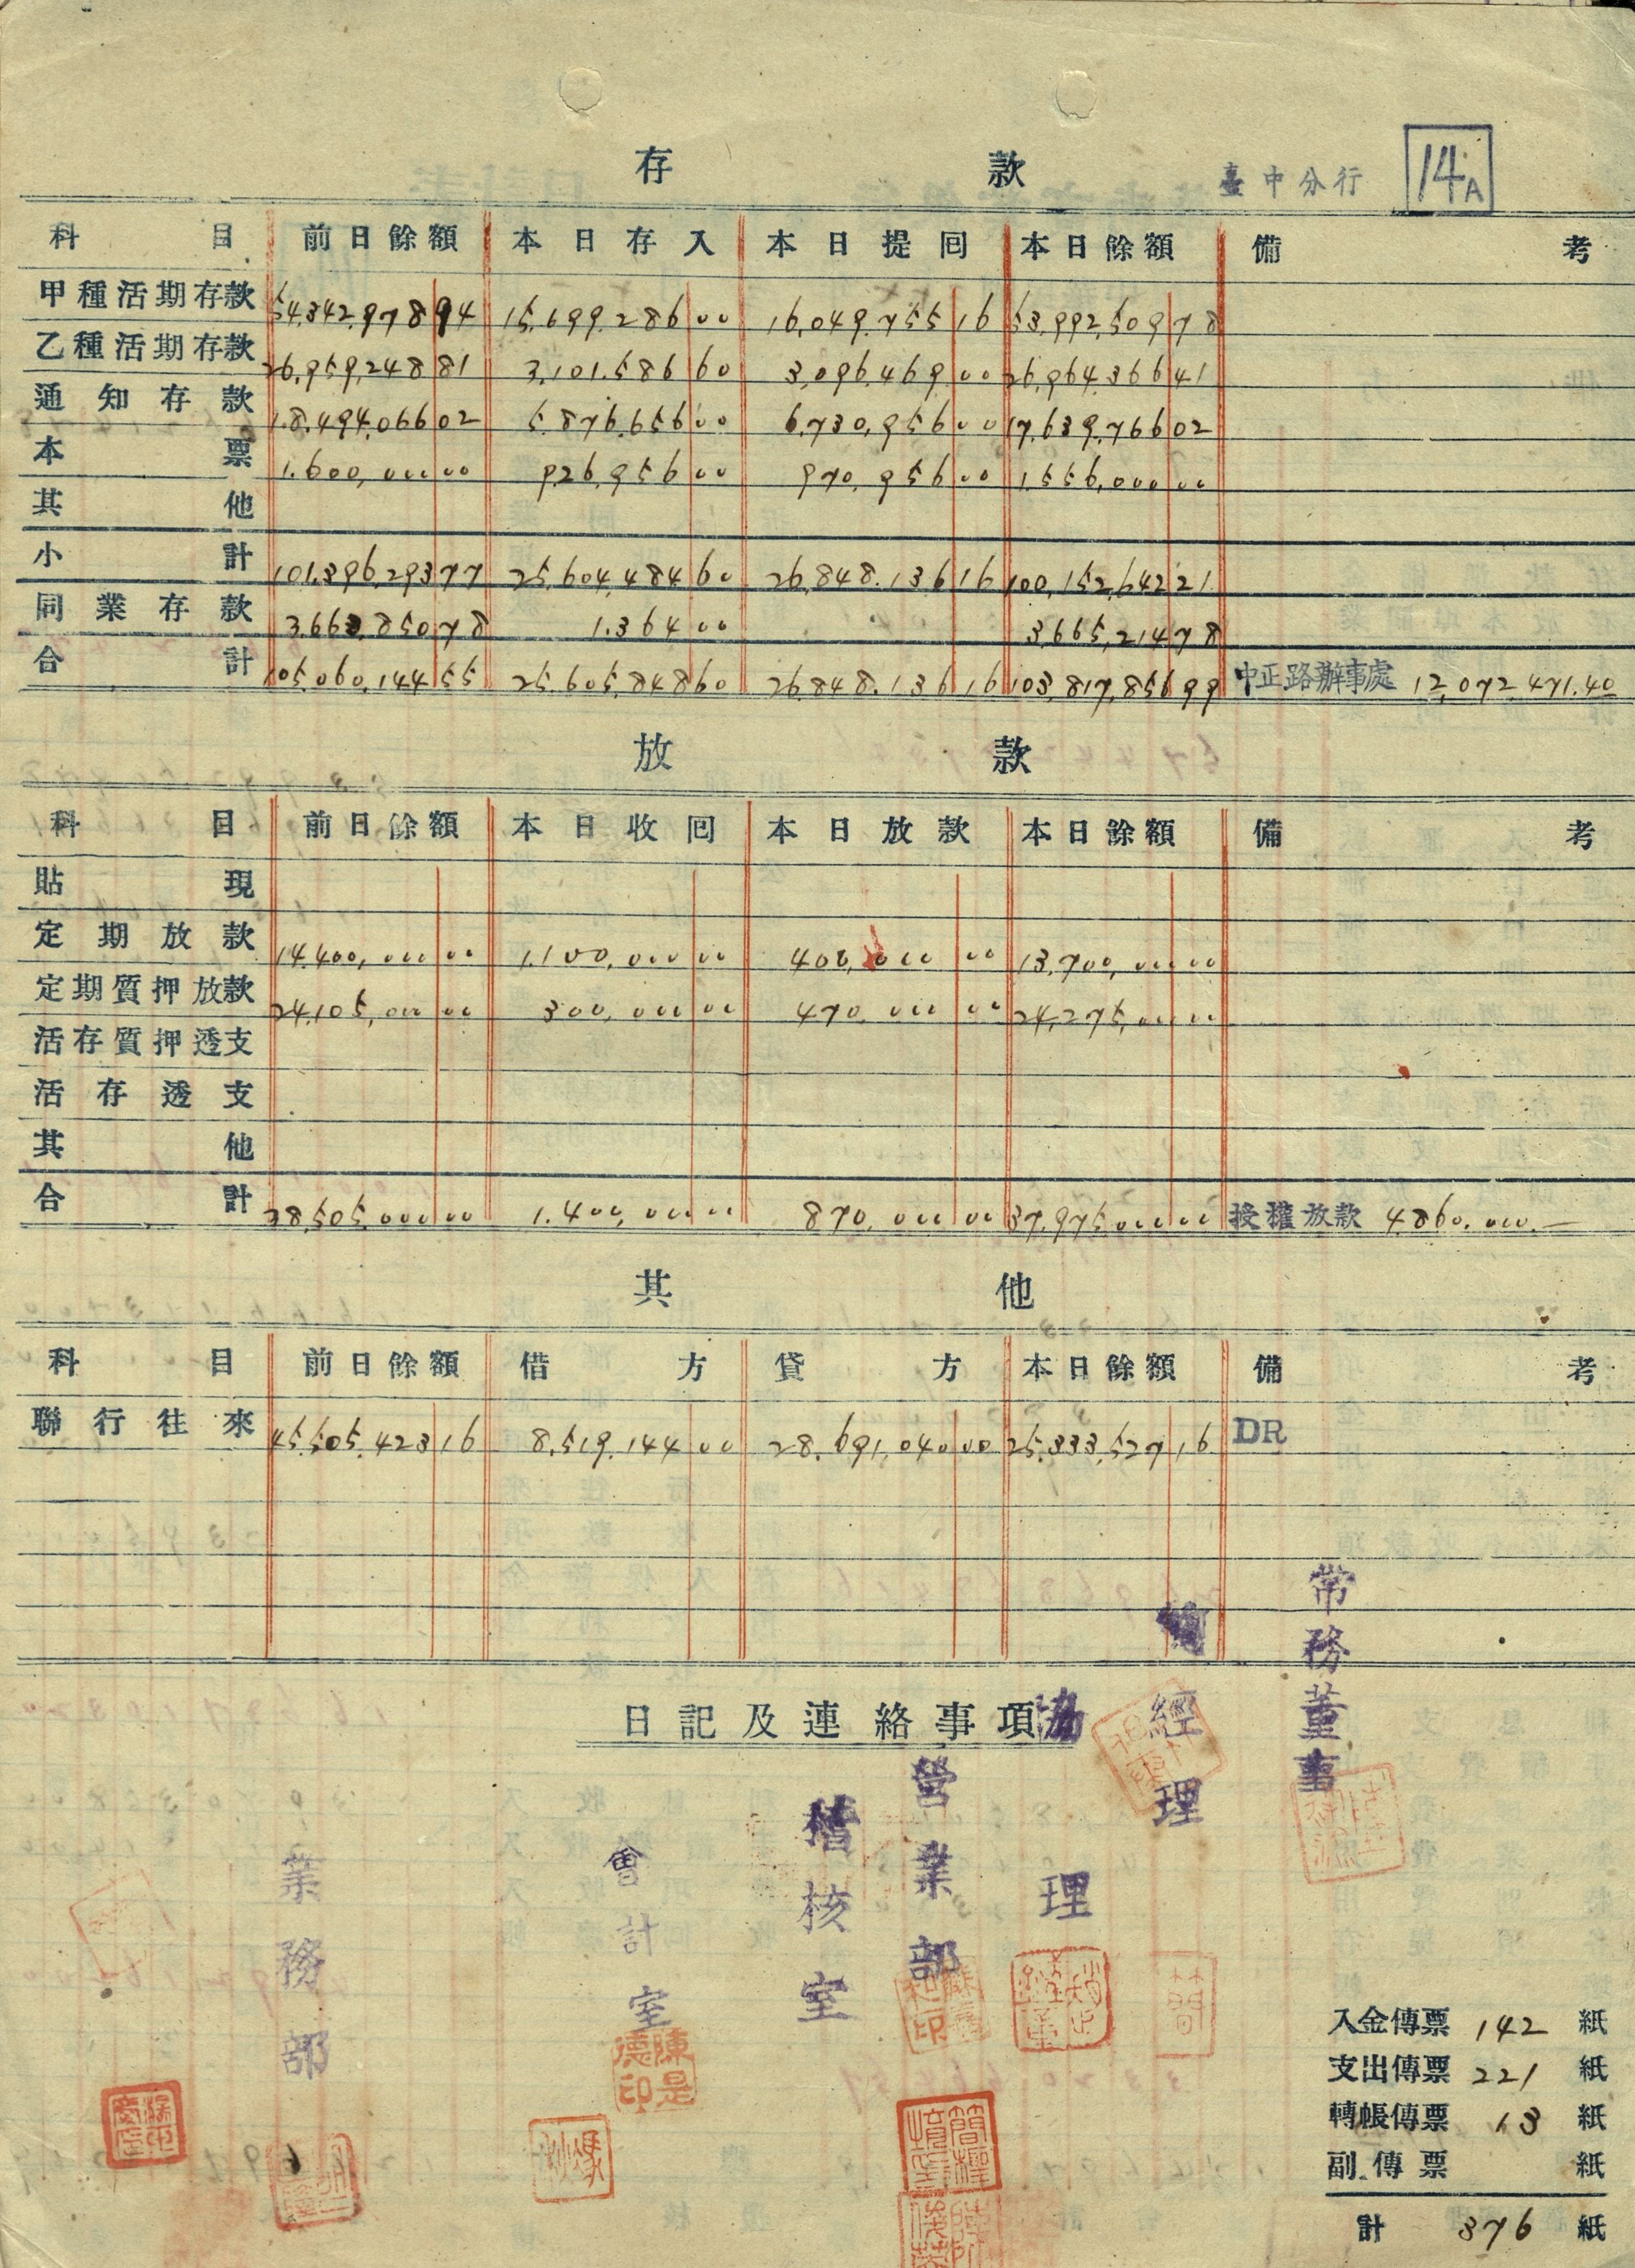 存款 臺中分行 14A
科目 前日餘額 本日存入 本日提囘 本日餘額 備考
甲種活期存款 54,342,978 94 15,699,286 00 16,049,755 16 53,992,509 78
乙種活期存款 26,959,248 81 3,101,586 60 3,096,469 00 26,964,366 41
通知存款 18,494,066 02 5,876,656 00 6,730,956 00 17,639,766 02
本票 1,600,000 00 926,956 00 970,956 00 1,556,000 00
其他
小計 101,396,293 77 25,604,484 60 26,848,136 16 100,152,642 21
同業存款 3,663,850 78 1,364 00 3,665,214 78
合計 105,060,144 55 25,605,848 60 26,848,136 16 103,817,856 99 中正路辦事處 12,072,471.40
放款
科目 前日餘額 本日收囘 本日放款 本日餘額 備考
貼現
定期放款 14,400,000 00 1,100,000 00 400,000 00 13,700,000 00
定期質押放款 24,105,000 00 300,000 00 470,000 00 24,275,000 00
活存質押透支
活存透支
其他
合計 38,505,000 00 1,400,000 00 870,000 00 37,975,000 00 授權放款 4,860,000.—
其他
科目 前日餘額 借方 貸方 本日餘額 備考
聯行往來 45,505,423 16 8,519,144 00 28,691,040 00 25,333,527 16 DR
日記及連絡事項
常務董事
經理
協理
營業部
稽核室
會計室
業務部
陳是德印
入金傳票 142 紙
支出傳票 221 紙
轉帳傳票 13 紙
副傳票 紙
計 376 紙